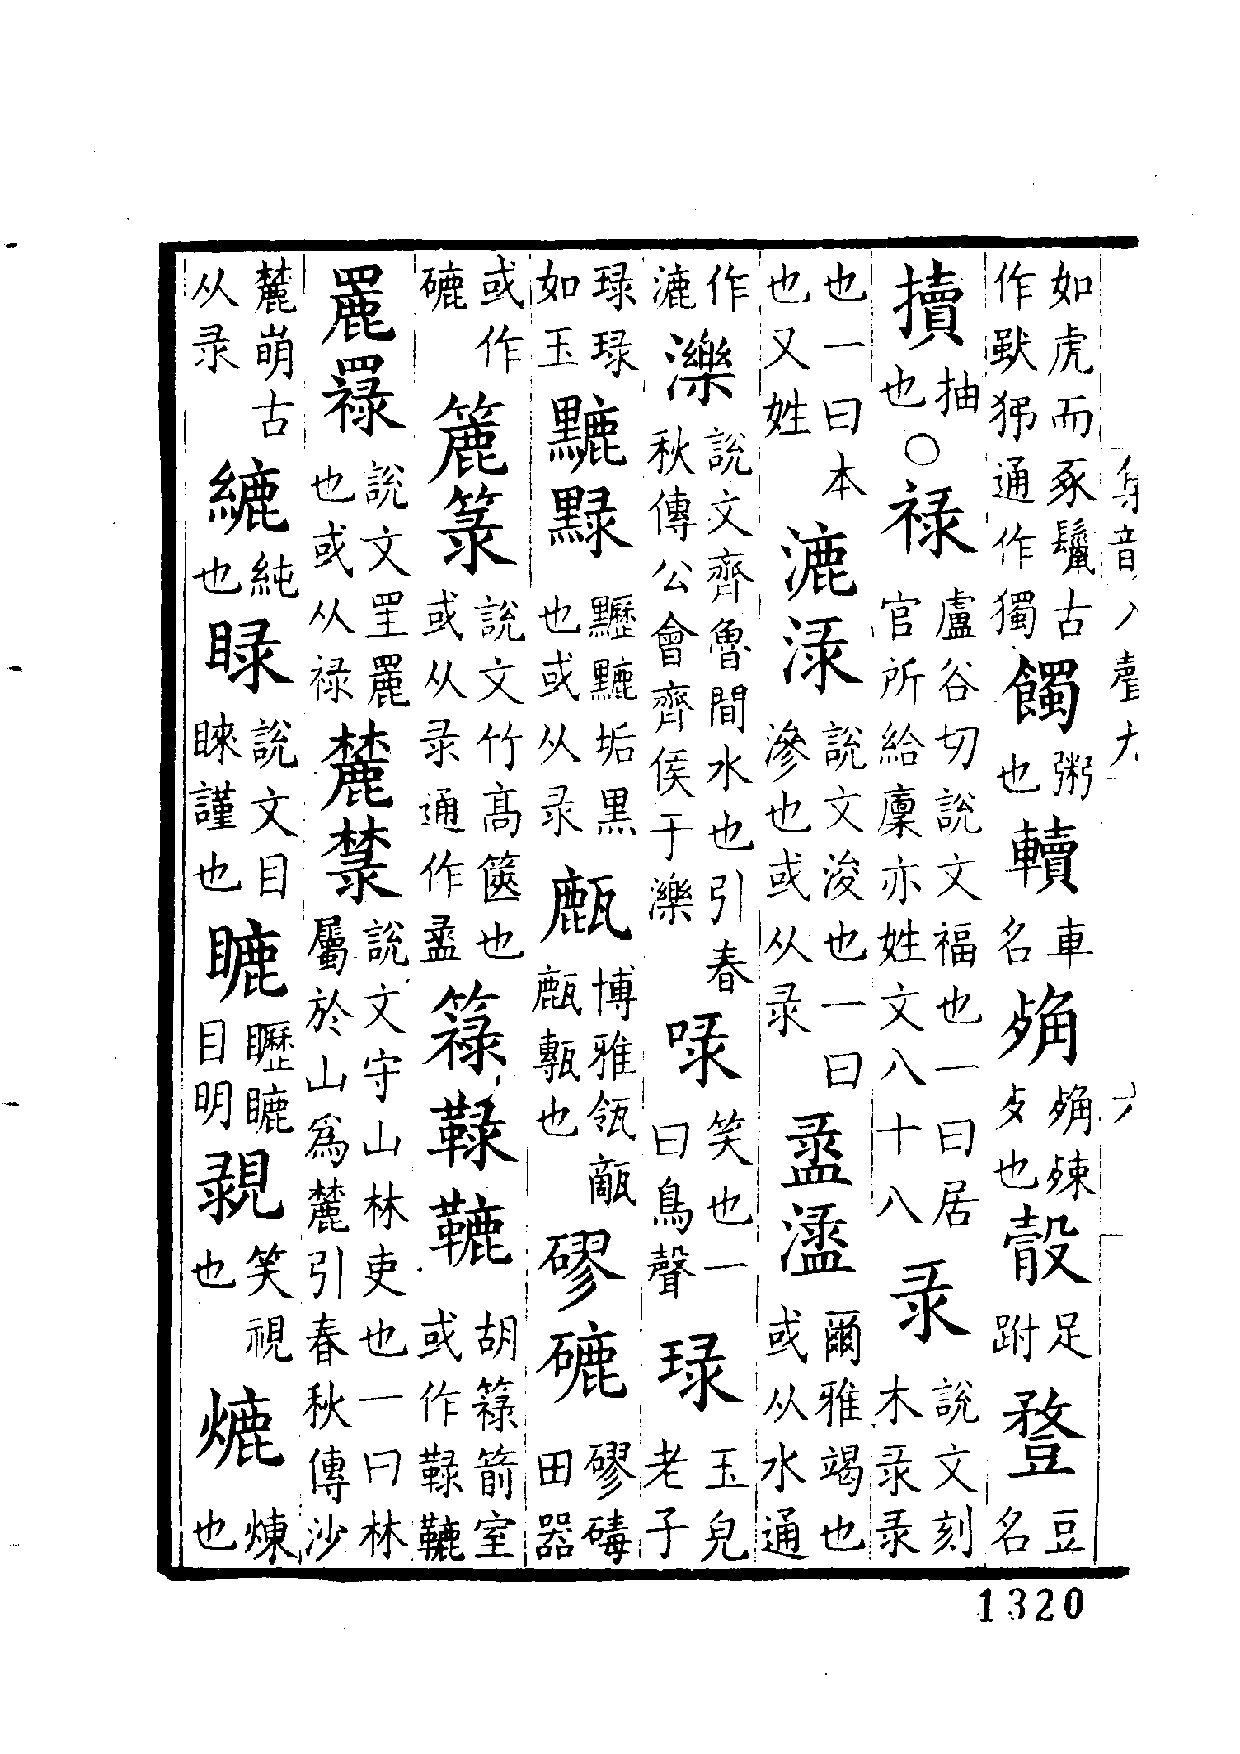 如虎而豕鬣古作通作獨 粥也 車名 也 足跗 豆名
抽也○祿盧谷切說文福也一曰居官所給廩亦姓文八十八 彔說文刻木彔彔
也一曰本也又姓 漉淥說文浚也一曰滲也或从彔 盝爾雅竭也或从水通
作漉 濼說文齊魯間水也引春秋傳公會齊侯于濼 㖨笑也一曰鳥聲 琭玉皃老子
琭琭如玉 垢黑也或从彔 博雅瓴甎也 磟䃙磟碡田器
或作䃙 簏箓說文竹高篋也或从彔通作盝 簶胡簶箭室或作
說文罜也或从祿 麓說文守山林吏也一曰林屬於山爲麓引春秋傳沙
麓崩古从彔 純也 睩說文目睞謹也 目明 笑視也 熝煉也
集韻入聲九 六
1320